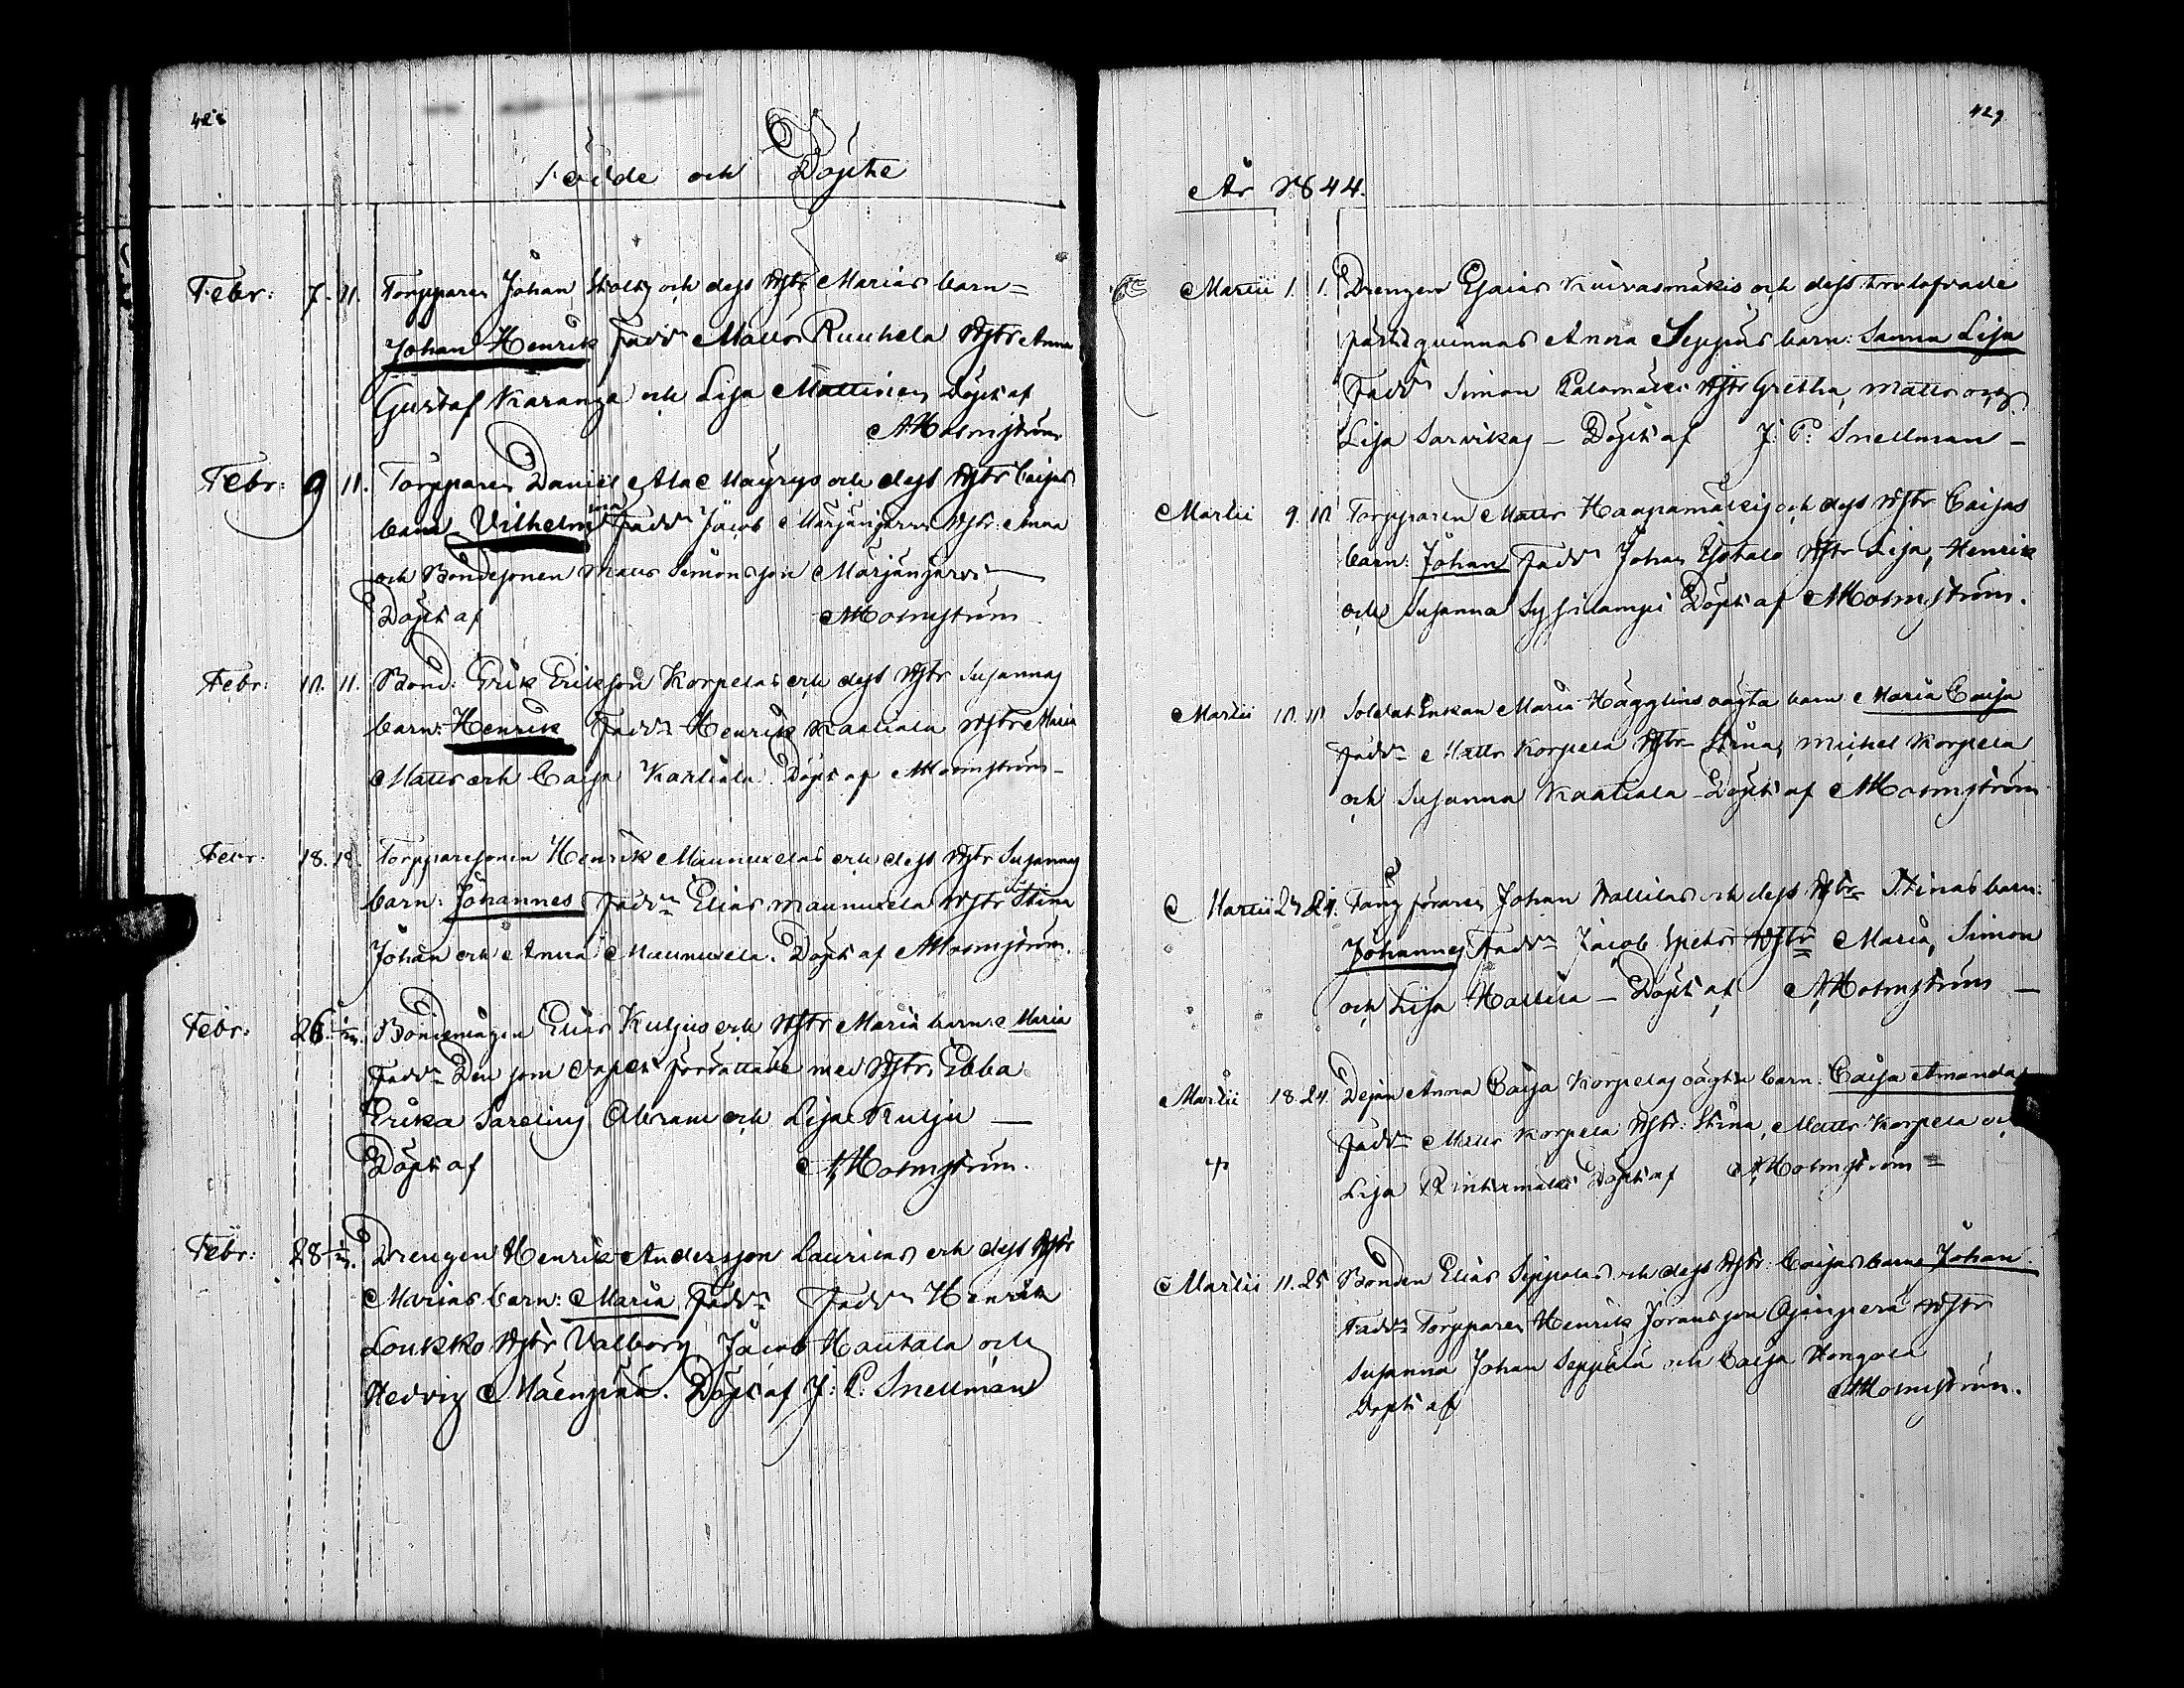 428
Födde och Döpte
Febr: 7. 11. Torpparen Johan Stoltz och dess Hstr Marias barn=
Johan Henrik Faddr Matts Ruuhela Hstr Anna
Gustaf Karanga och Lisa Mattinen Döpt af
A Holmström
Febr: 9 11. Torpparen Daniel Ala Mäyrys och dess Hstr Caisas
barn Vilhelmina Faddr Jacob Märjänjärvi Hstr: Anna
och Bondesonen Matts Simonsson Märjänjärvi —
Döpt af A Holmström
Febr: 10. 11. Bond: Erik Eriksson Korpelas och dess Hstr Susannas
barn: Henrik Faddr Henrik Kaatiala Hstr Maria
Matts och Caisa Kaatiala. Döpt af A Holmström —
Febr: 18. 18. Torpparesonen Henrik Maunukelas och dess Hstr Susannas
barn: Johannes Faddr Elias Maunukela Hstr Stina
Johan och Anna Maunukela. Döpt af A Holmström.
Febr: 26. Bondemågen Elias Kuljus och Hstr Maria barn: Maria
Faddr Den som Dopet förrättade med Hstr Ebba
Erika Sarelius Abram och Lisa Kulju —
Döpt af A Holmström.
Febr: 28 Drengen Henrik Andersson Laurilas och dess Hstr
Marias barn: Maria Faddr Faddr Henrik
Loukko Hstr Valborg Jacob Hautala och
Hedvig Mäenpää. Döpt af J: P. Snellman
429
År 1844.
Martii 1. 1. Drengen Esaias Kuivasmäkis och dess trolofvade
partsquinnas Anna Seppäs barn: Sanna Lisa
Faddr Simon Palomäki Hstr Gretha, Matts och
Lisa Sarvikas — Döpt af J: P: Snellman —
Martii 9. 10 Torpparen Matts Haapamäkis och dess Hstr Caisas
barn: Johan Faddr Johan Ylitalo Hstr Lisa, Henrik
och Susanna Syssilampi Döpt af A Holmström.
Martii 10. 10 Soldat Enkan Maria Hägglins oägta barn Maria Caisa
Faddr Matts Korpela Hstr Stina, Michel Korpela
och Susanna Kaatiala Döpt af A Holmström
Martii 23 24. Fangföraren Johan Hallilas och dess Hstr Stinas barn:
Johannes Faddr Jacob Hstr Maria, Simon
och Lisa Hallila — Döpt af A Holmström —
Martii 18. 24. Dejan Anna Caisa Korpelas oägta barn: Caisa Amanda
Faddr Matts Korpela Hstr: Stina, Matts Korpela och
Lisa Rintamäki Döpt af A Holmström =
Martii 11. 25 Bonden Elias Seppälas och dess Hstr: Caisas barn Johan.
Faddr Torpparen Henrik Göransson Ojanperä Hstr
Susanna Johan Seppälä och Caisa Hongola
Döpt af A Holmström.